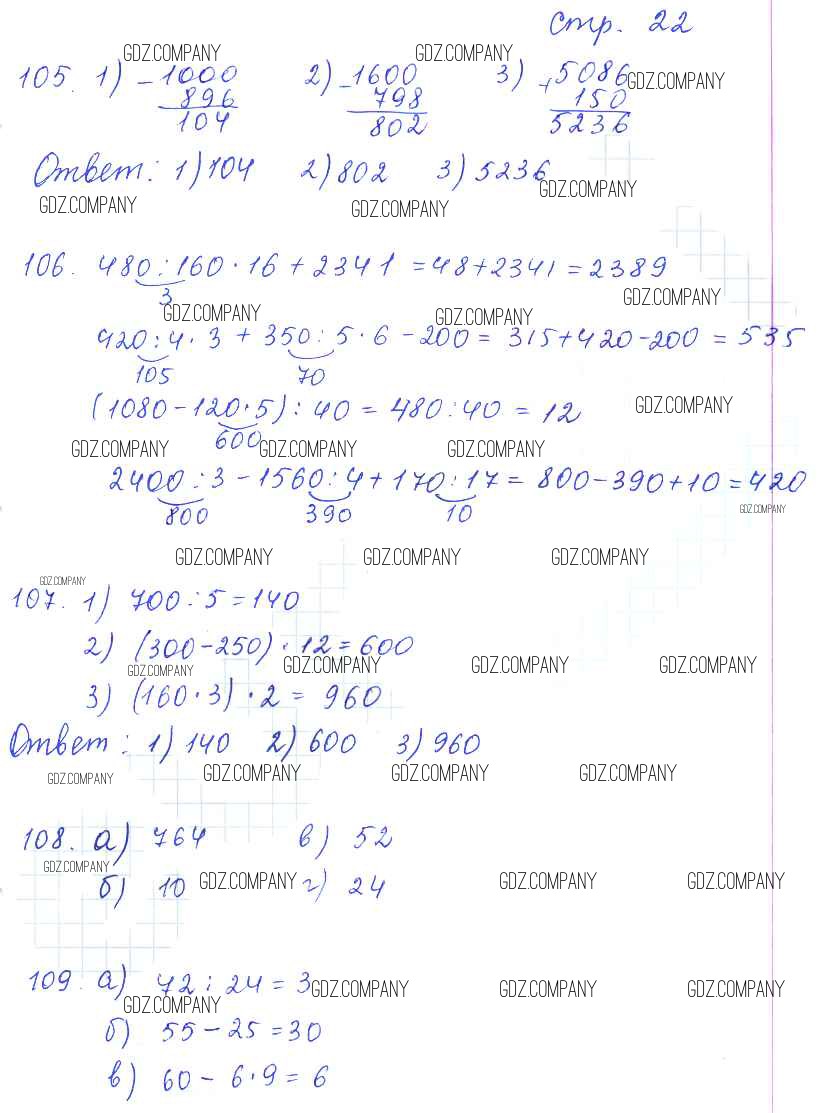 стр. 22
GDZ.COMPANY GDZ.COMPANY
105. 1) -1000 2) -1600 3) +5086 GDZ.COMPANY
896 798 150
104 802 5236
Ответ: 1) 104 2) 802 3) 5236
GDZ.COMPANY
GDZ.COMPANY GDZ.COMPANY
106. 480:160·16+2341=48+2341=2389
3
GDZ.COMPANY GDZ.COMPANY GDZ.COMPANY
420:4·3+350:5·6-200=315+420-200=535
105 70
(1080-120·5):40=480:40=12 GDZ.COMPANY
600
GDZ.COMPANY GDZ.COMPANY GDZ.COMPANY
2400:3-1560:4+170:17=800-390+10=420
800 390 10 GDZ.COMPANY
GDZ.COMPANY GDZ.COMPANY GDZ.COMPANY
GDZ.COMPANY
107. 1) 700:5=140
2) (300-250)·12=600
GDZ.COMPANY GDZ.COMPANY GDZ.COMPANY GDZ.COMPANY
3) (160·3)·2=960
Ответ: 1) 140 2) 600 3) 960
GDZ.COMPANY GDZ.COMPANY GDZ.COMPANY GDZ.COMPANY
108. а) 764 в) 52
GDZ.COMPANY
б) 10 GDZ.COMPANY г) 24 GDZ.COMPANY GDZ.COMPANY
109. а) 72:24=3 GDZ.COMPANY GDZ.COMPANY GDZ.COMPANY
GDZ.COMPANY
б) 55-25=30
в) 60-6·9=6